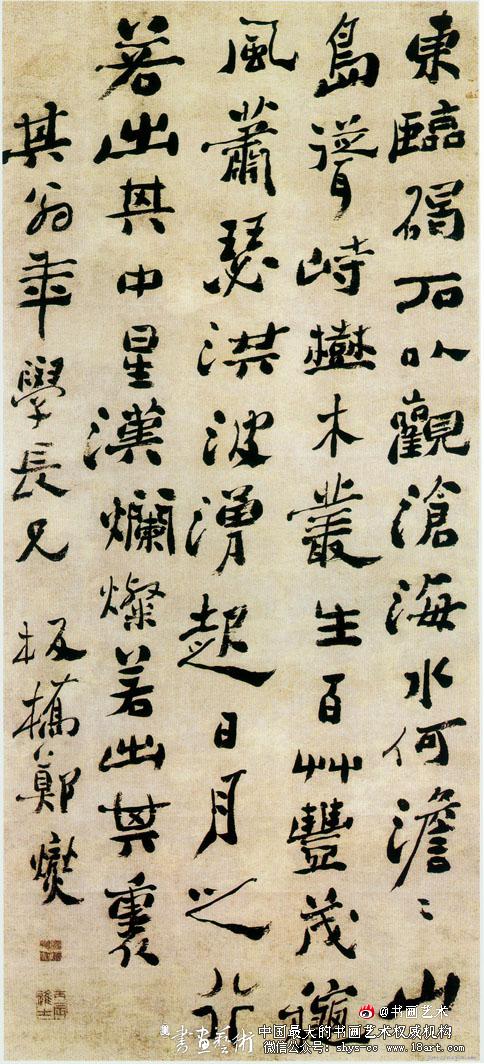 東臨碣石以觀滄海水何澹〻山
島聳峙樹木叢生百艸豐茂龝
風蕭瑟洪波湧起日月之行
若出其中星漢爛燦若出其裏
其翁年學長兄 板橋鄭燮
丙辰進士
@书画艺术
書畫藝術
中国最大的书画艺术权威机构
微信公众号: shys-oo www.18art.com